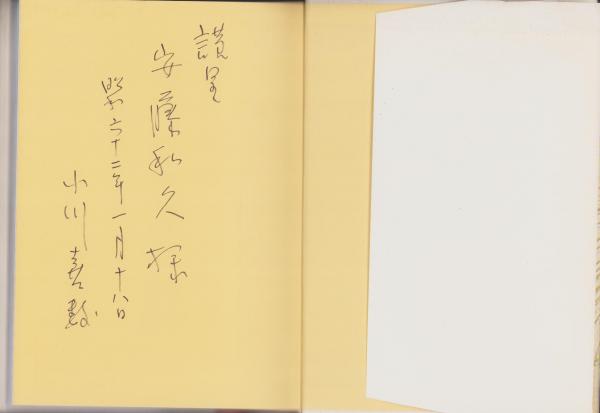 謹呈
安藤和久様
昭和六十二年一月十八日
小川喜数